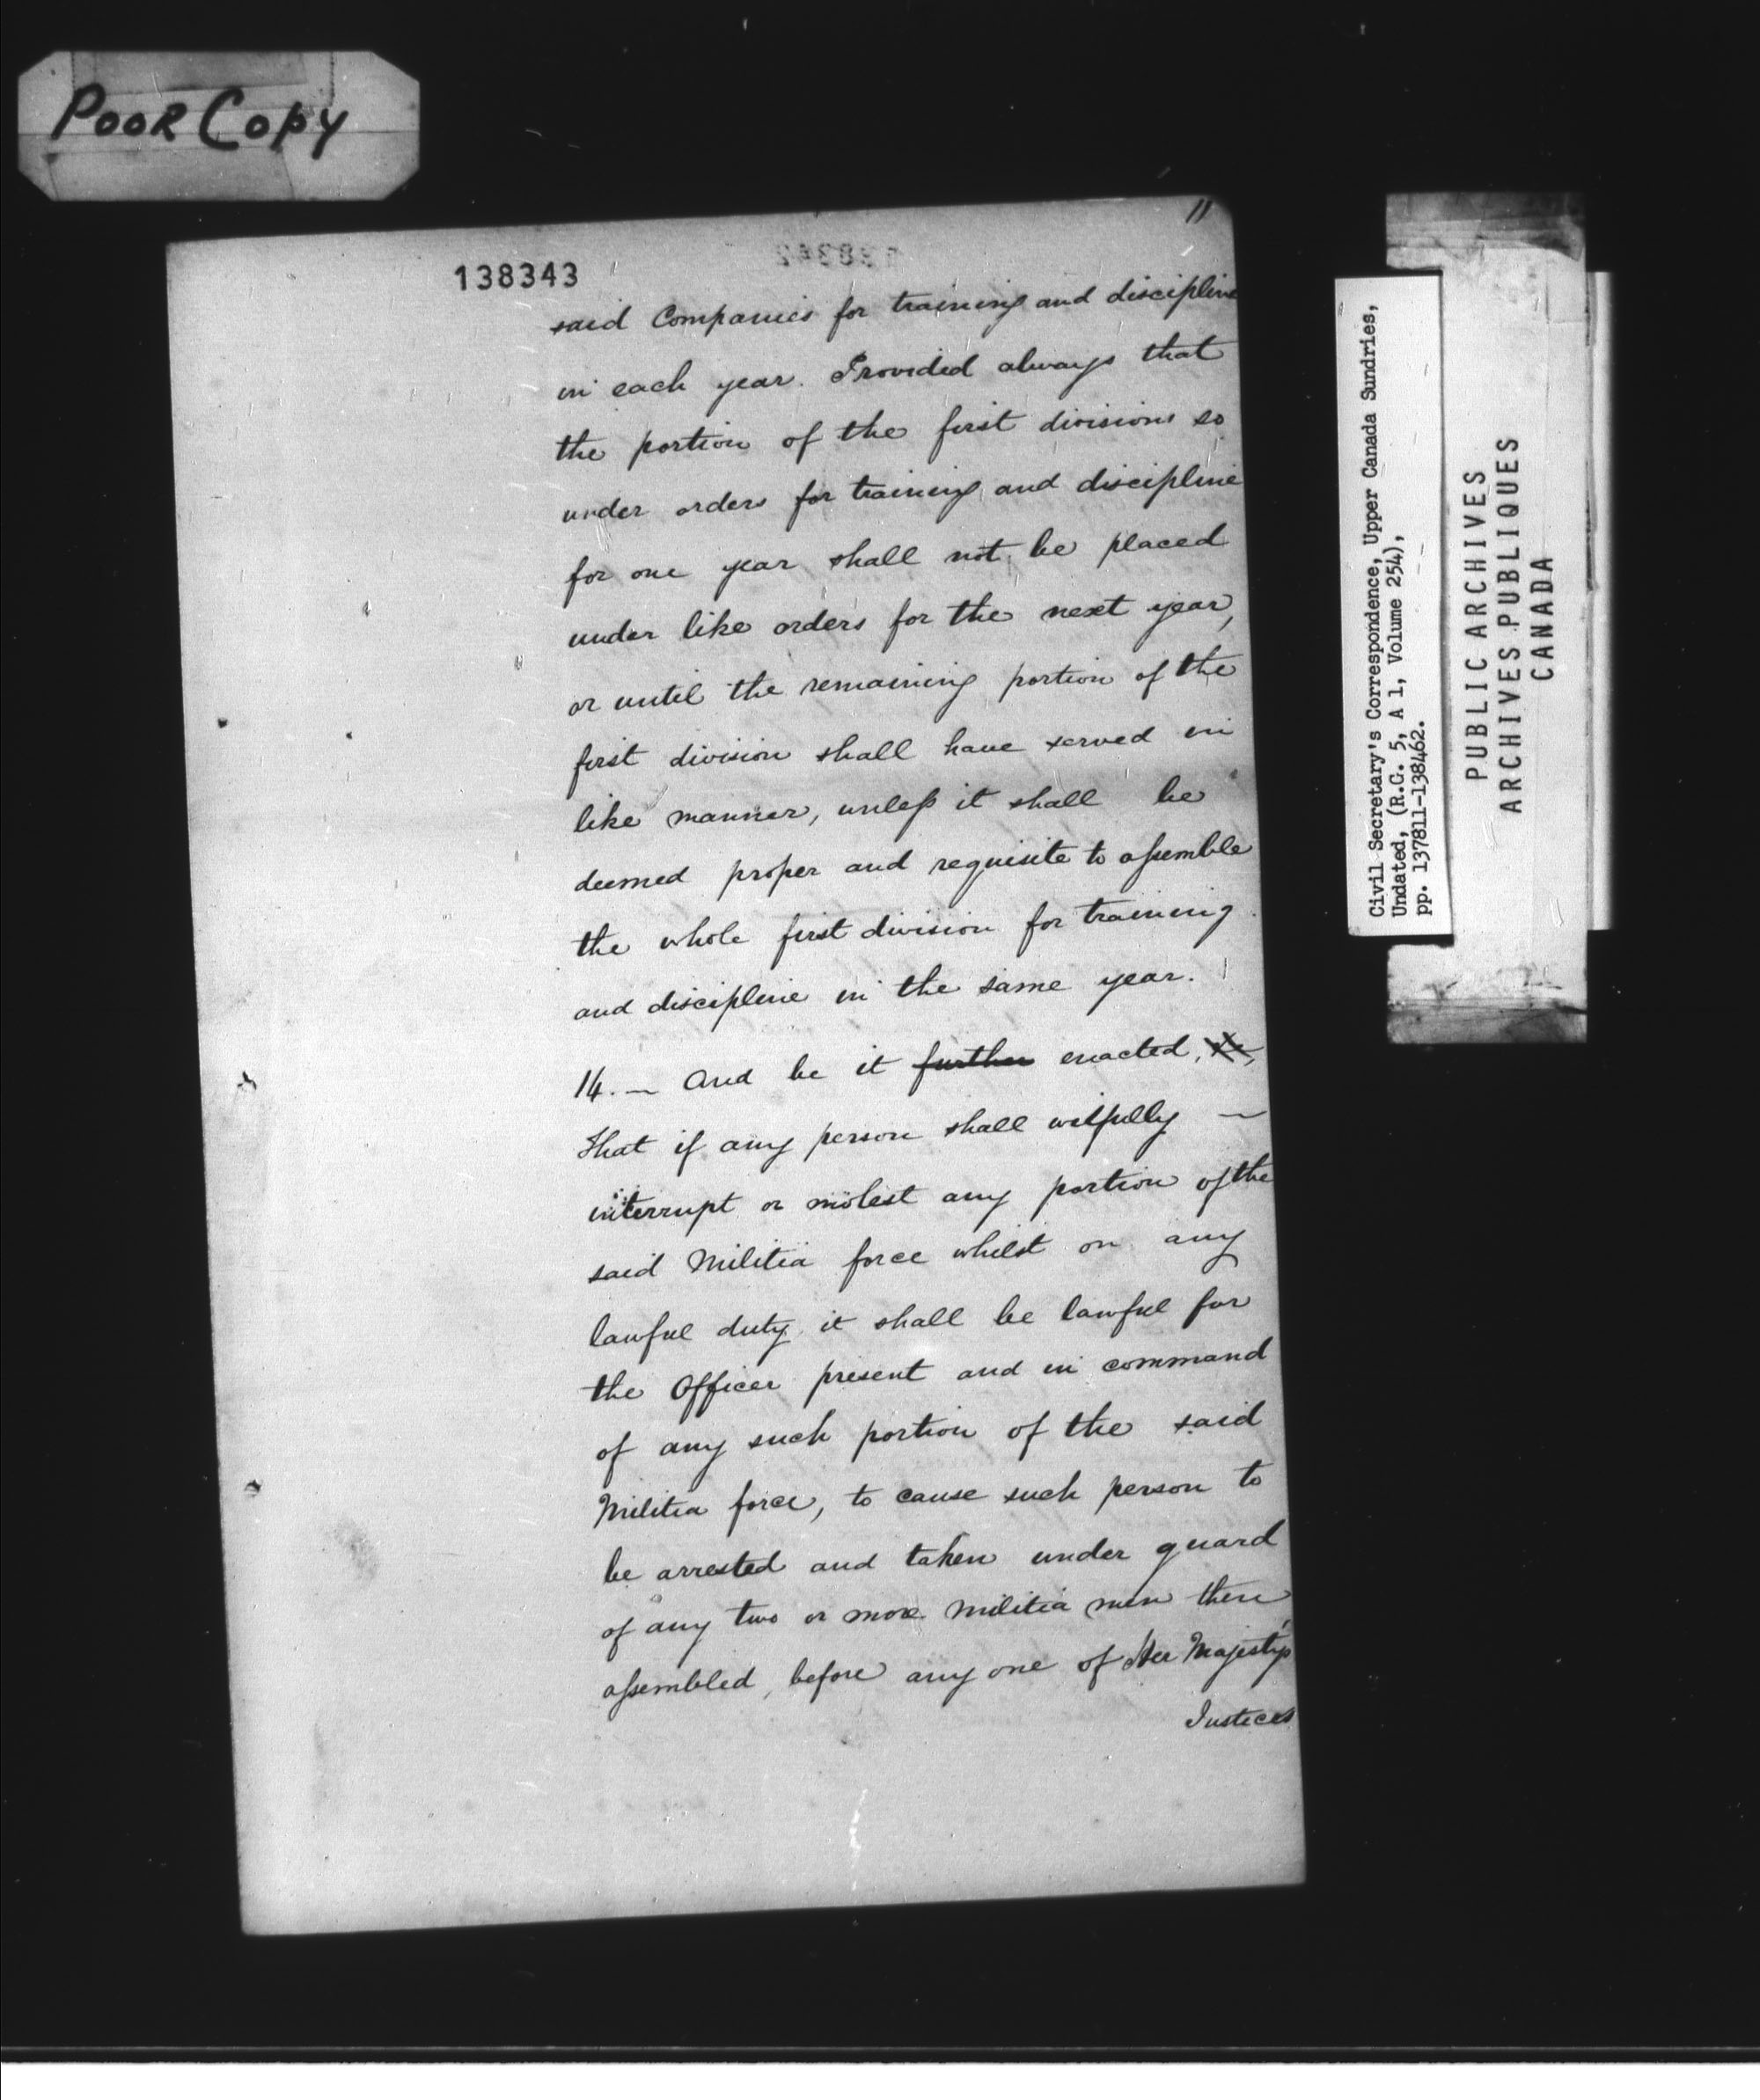 Poor Copy
11
138343
said Companies for training and discipline
in each year. Provided always that
the portion of the first divisions so
under orders for training and discipline
for one year shall not be placed
under like orders for the next year,
or until the remaining portion of the
first division shall have served in
like manner, unless it shall be
deemed proper and requisite to assemble
the whole first division for training
and discipline in the same year.
14. — And be it further enacted,
That if any person shall wilfully —
interrupt or molest any portion of the
said Militia force whilst on any
lawful duty it shall be lawful for
the Officer present and in command
of any such portion of the said
Militia force, to cause such person to
be arrested and taken under guard
of any two or more Militia men there
assembled, before any one of Her Majesty's
Justices
Civil Secretary's Correspondence, Upper Canada Sundries,
Undated, (R.G. 5, A 1, Volume 254),
pp. 137811-138462.
PUBLIC ARCHIVES
ARCHIVES PUBLIQUES
CANADA